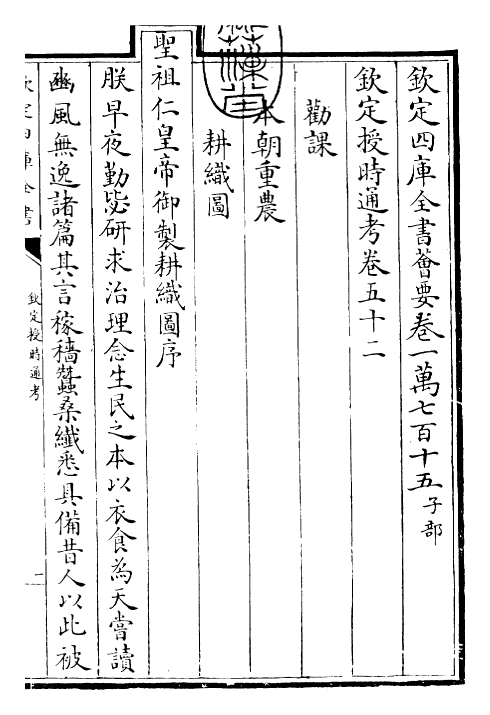 欽定四庫全書薈要卷一萬七百十五子部
欽定授時通考卷五十二
勸課
本朝重農
耕織圖
聖祖仁皇帝御製耕織圖序
朕早夜勤毖研求治理念生民之本以衣食為天嘗讀
豳風無逸諸篇其言稼穡蠶桑纖悉具備昔人以此被
欽定四庫全書
欽定授時通考
一